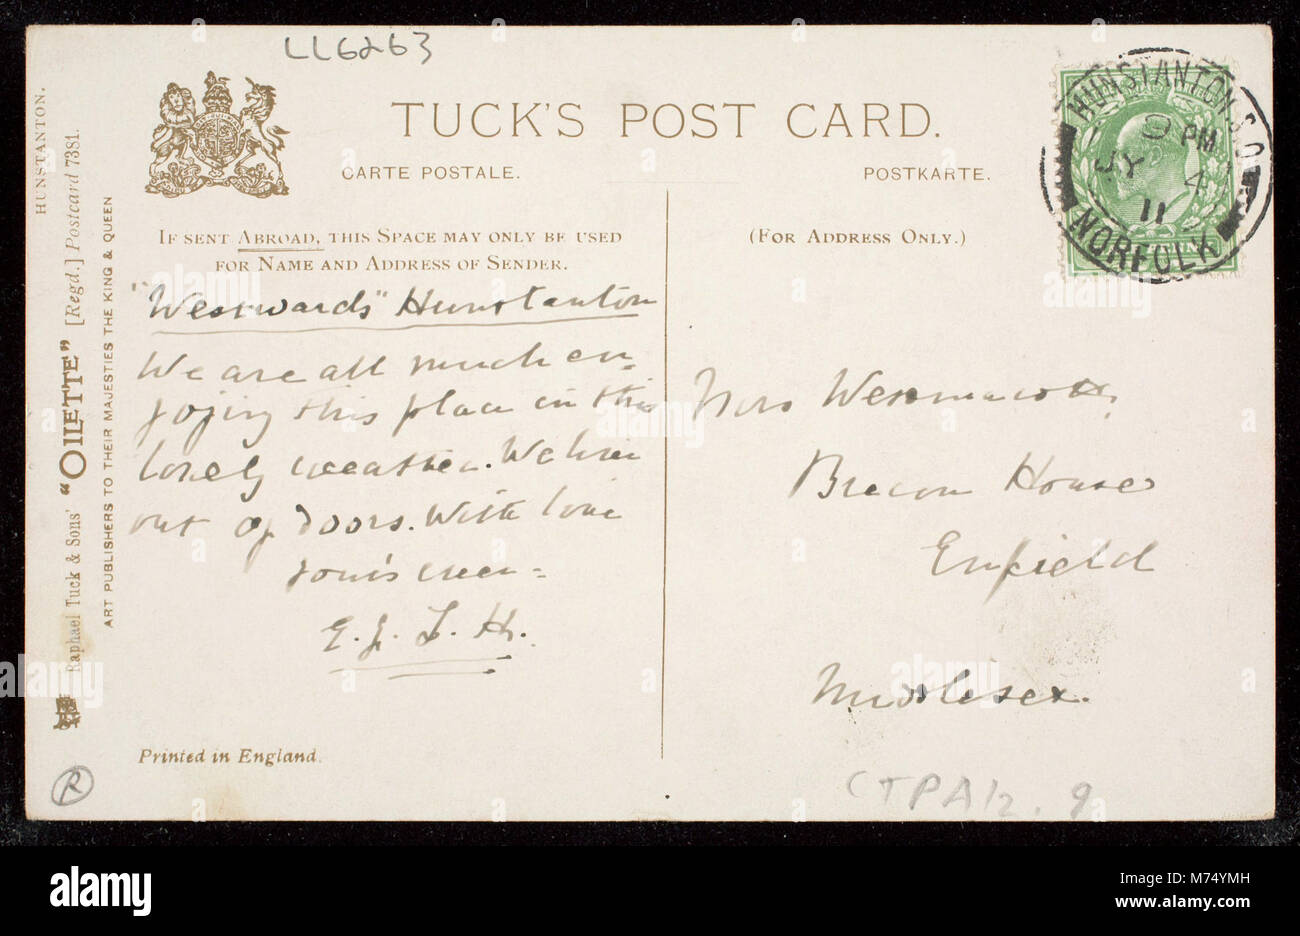 LL6263
TUCK'S POST CARD.
CARTE POSTALE.
POSTKARTE.
IF SENT ABROAD, THIS SPACE MAY ONLY BE USED
FOR NAME AND ADDRESS OF SENDER.
(FOR ADDRESS ONLY.)
HUNSTANTON S.O
9 PM
JY 4
11
NORFOLK
HUNSTANTON.
Raphael Tuck & Sons' "OILETTE" [Regd.] Postcard 7381.
ART PUBLISHERS TO THEIR MAJESTIES THE KING & QUEEN
"Westwards" Hunstanton
We are all much en-
joying this place in this
lovely weather. We live
out of doors. With love
yours ever-
E. J. L. H.
Mrs Westmacott,
Brecon House
Enfield
Middlesex.
Printed in England.
R
CTPA12.9
alamy
alamy
Image ID: M74YMH
www.alamy.com